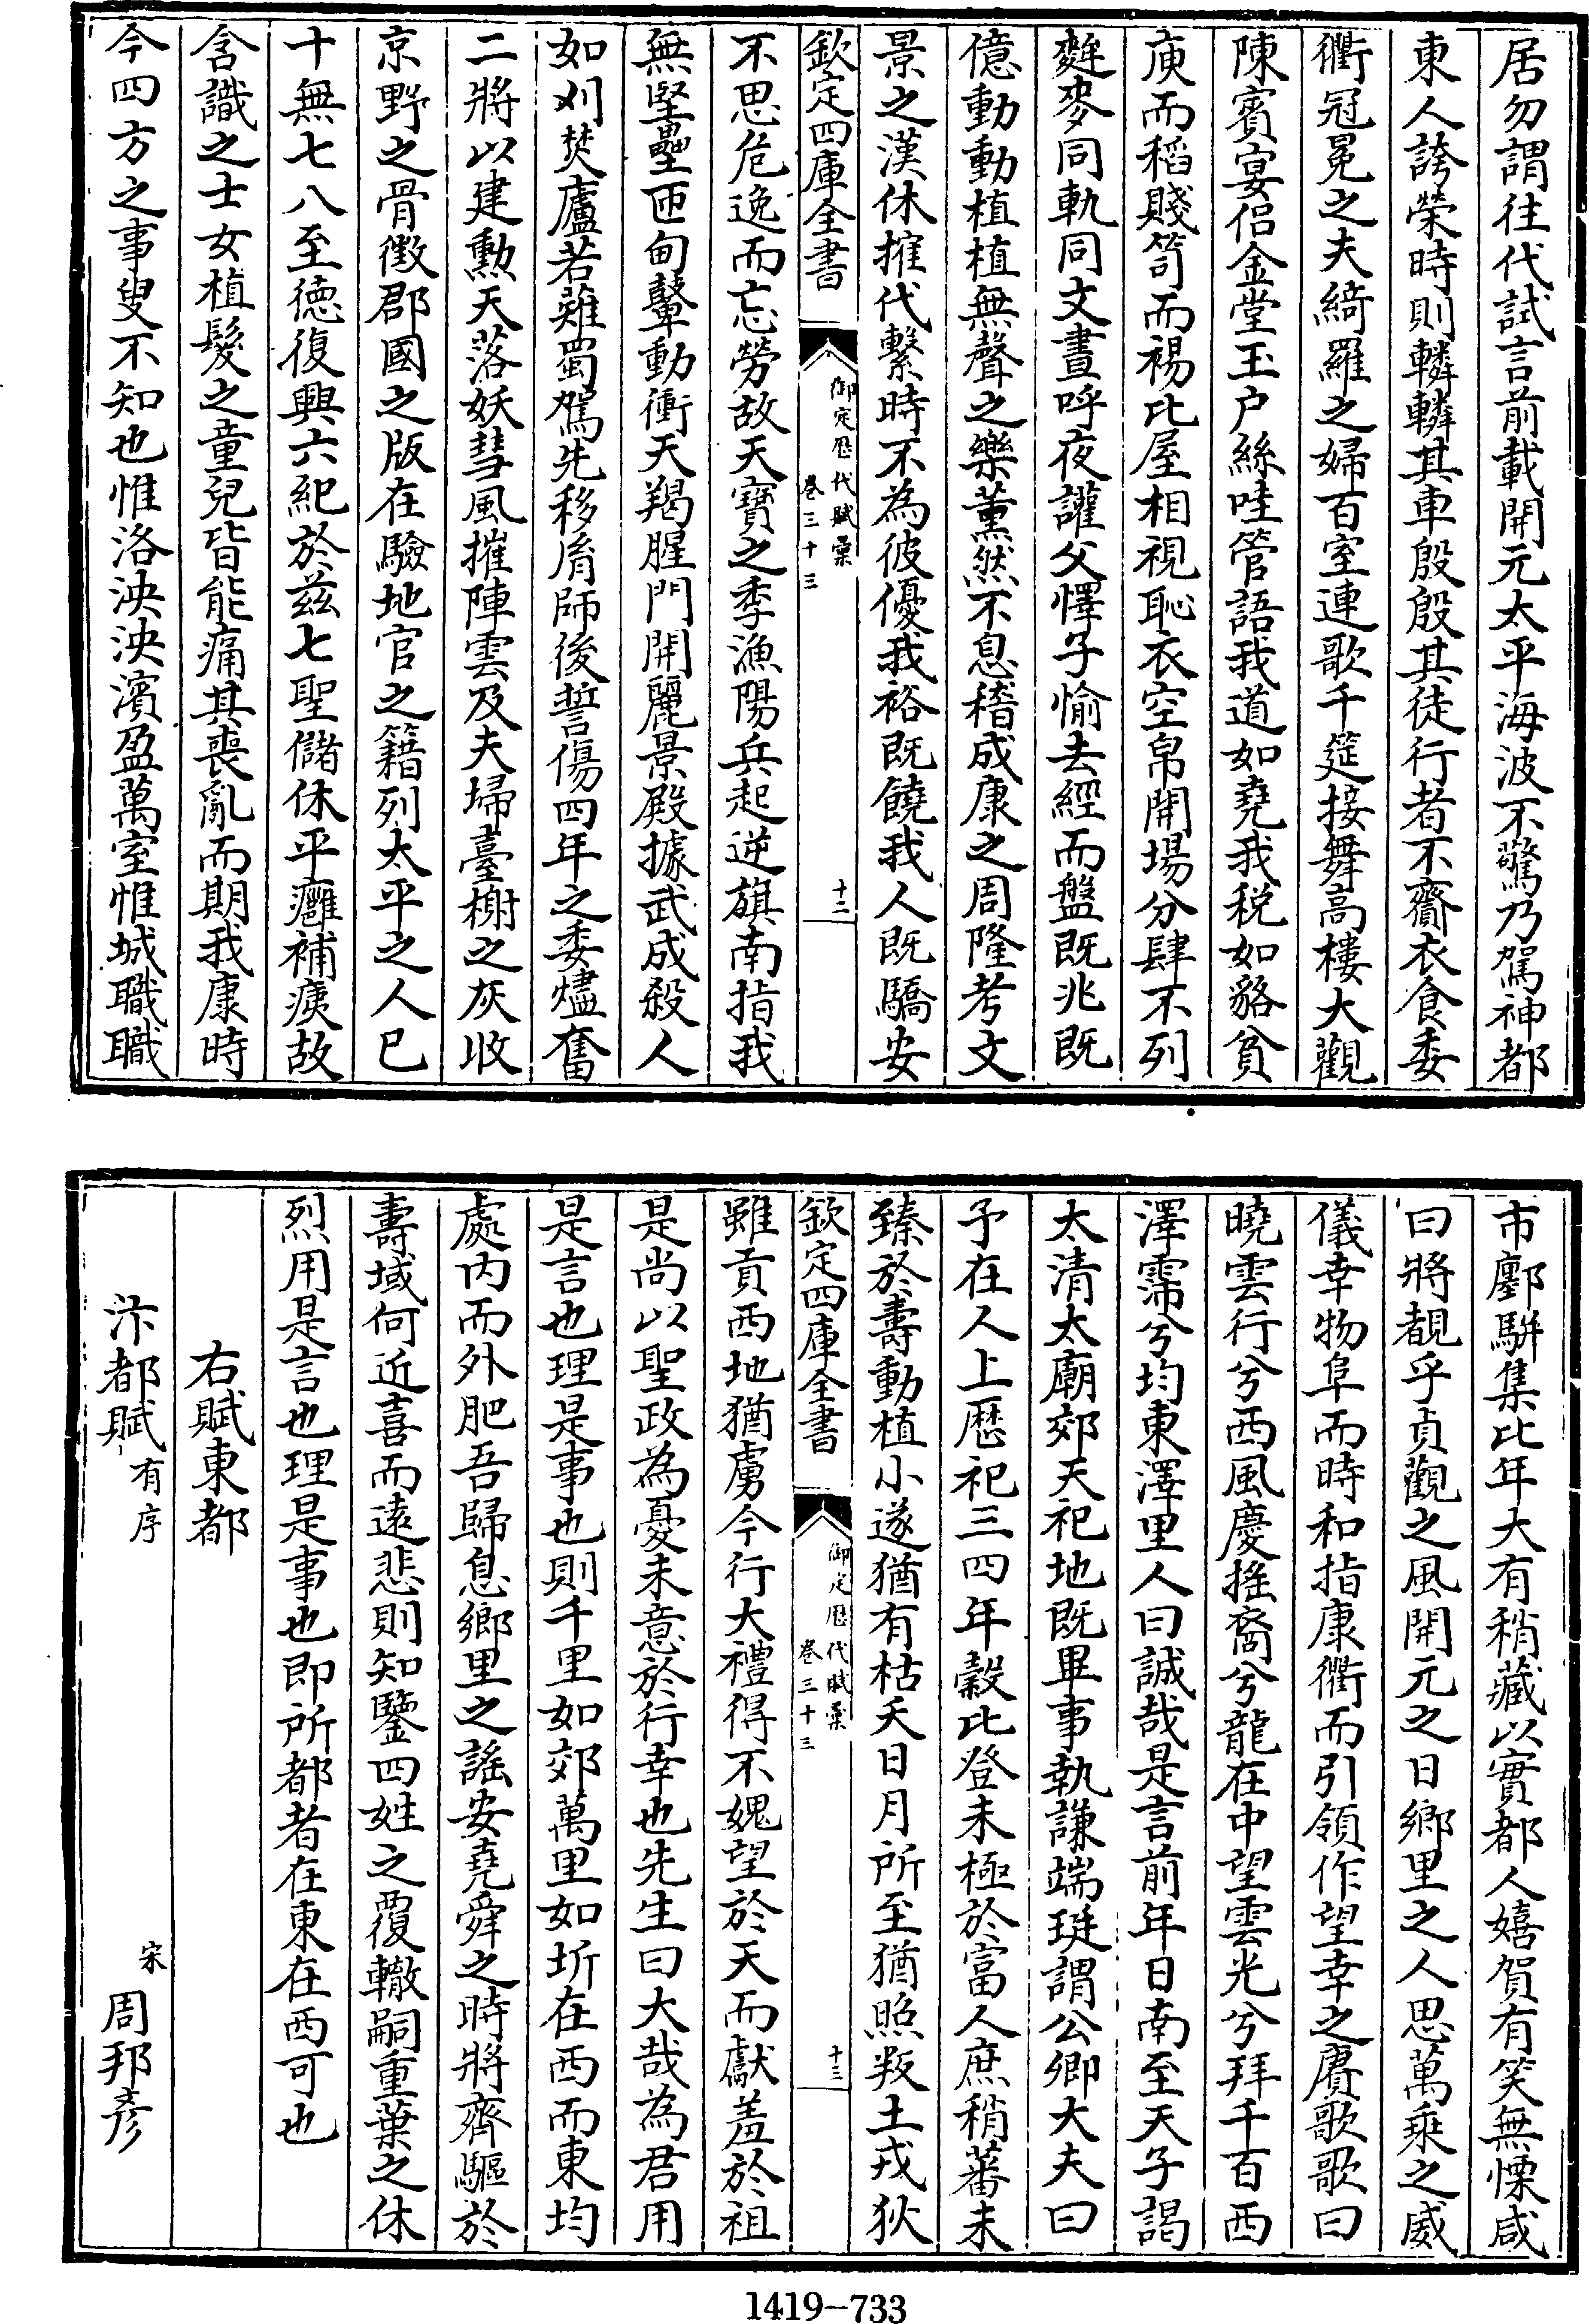 居勿謂往代試言前載開元太平海波不驚乃駕神都
東人誇榮時則轔轔其車殷殷其徒行者不齎衣食委
衢冠冕之夫綺羅之婦百室連歌千筵接舞髙樓大觀
陳賓宴侣金堂玉户絲哇管語我道如堯我税如貉貧
庾而稻賤笥而裼比屋相視恥衣空帛開場分肆不列
麰麥同軌同文晝呼夜讙父懌子愉去經而盤既兆既
億動動植植無聲之樂薰然不息稽成康之周隆考文
景之漢休搉代繫時不為彼優我裕既饒我人既驕安
欽定四庫全書
御定歴代賦彚
卷三十三
十二
不思危逸而忘勞故天寶之季漁陽兵起逆旗南指我
無堅壘匝甸鼙動衝天羯腥門開麗景殿據武成殺人
如刈焚廬若薙蜀駕先移胤師後誓傷四年之委燼奮
二將以建勲天落妖彗風摧陣雲及夫埽臺榭之灰收
京野之骨徴郡國之版在驗地官之籍列太平之人已
十無七八至徳復興六紀於兹七聖儲休平癰補痍故
含識之士女植髮之童兒皆能痛其喪亂而期我康時
今四方之事叟不知也惟洛泱泱濱盈萬室惟城職職
市鄽駢集比年大有稍藏以實都人嬉賀有笑無慄咸
曰將覩乎貞觀之風開元之日鄉里之人思萬乘之威
儀幸物阜而時和指康衢而引領作望幸之賡歌歌曰
曉雲行兮西風慶搖裔兮龍在中望雲光兮拜千百西
澤霈兮均東澤里人曰誠哉是言前年日南至天子謁
太清太廟郊天祀地既畢事執謙端珽謂公卿大夫曰
予在人上歴祀三四年穀比登未極於富人庶稍蕃未
臻於壽動植小遂猶有枯夭日月所至猶照叛土戎狄
欽定四庫全書
御定歴代賦彚
卷三十三
十三
雖貢西地猶虜今行大禮得不媿望於天而獻羞於祖
是尚以聖政為憂未意於行幸也先生曰大哉為君用
是言也理是事也則千里如郊萬里如圻在西而東均
處内而外肥吾歸息鄉里之謡安堯舜之時將齊驅於
壽域何近喜而遠悲則知鑒四姓之覆轍嗣重葉之休
烈用是言也理是事也即所都者在東在西可也
右賦東都
汴都賦有序
宋
周邦彦
1419-733